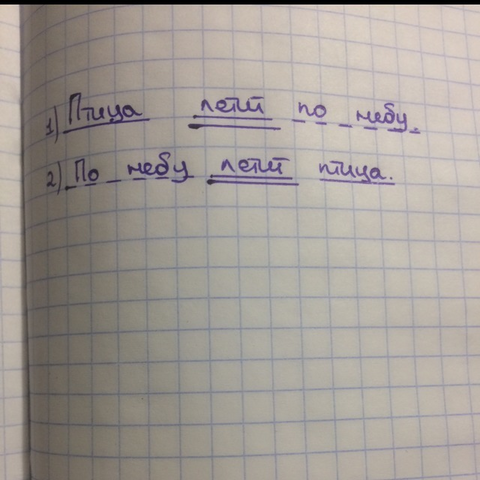 1) Птица летит по небу.
2) По небу летит птица.